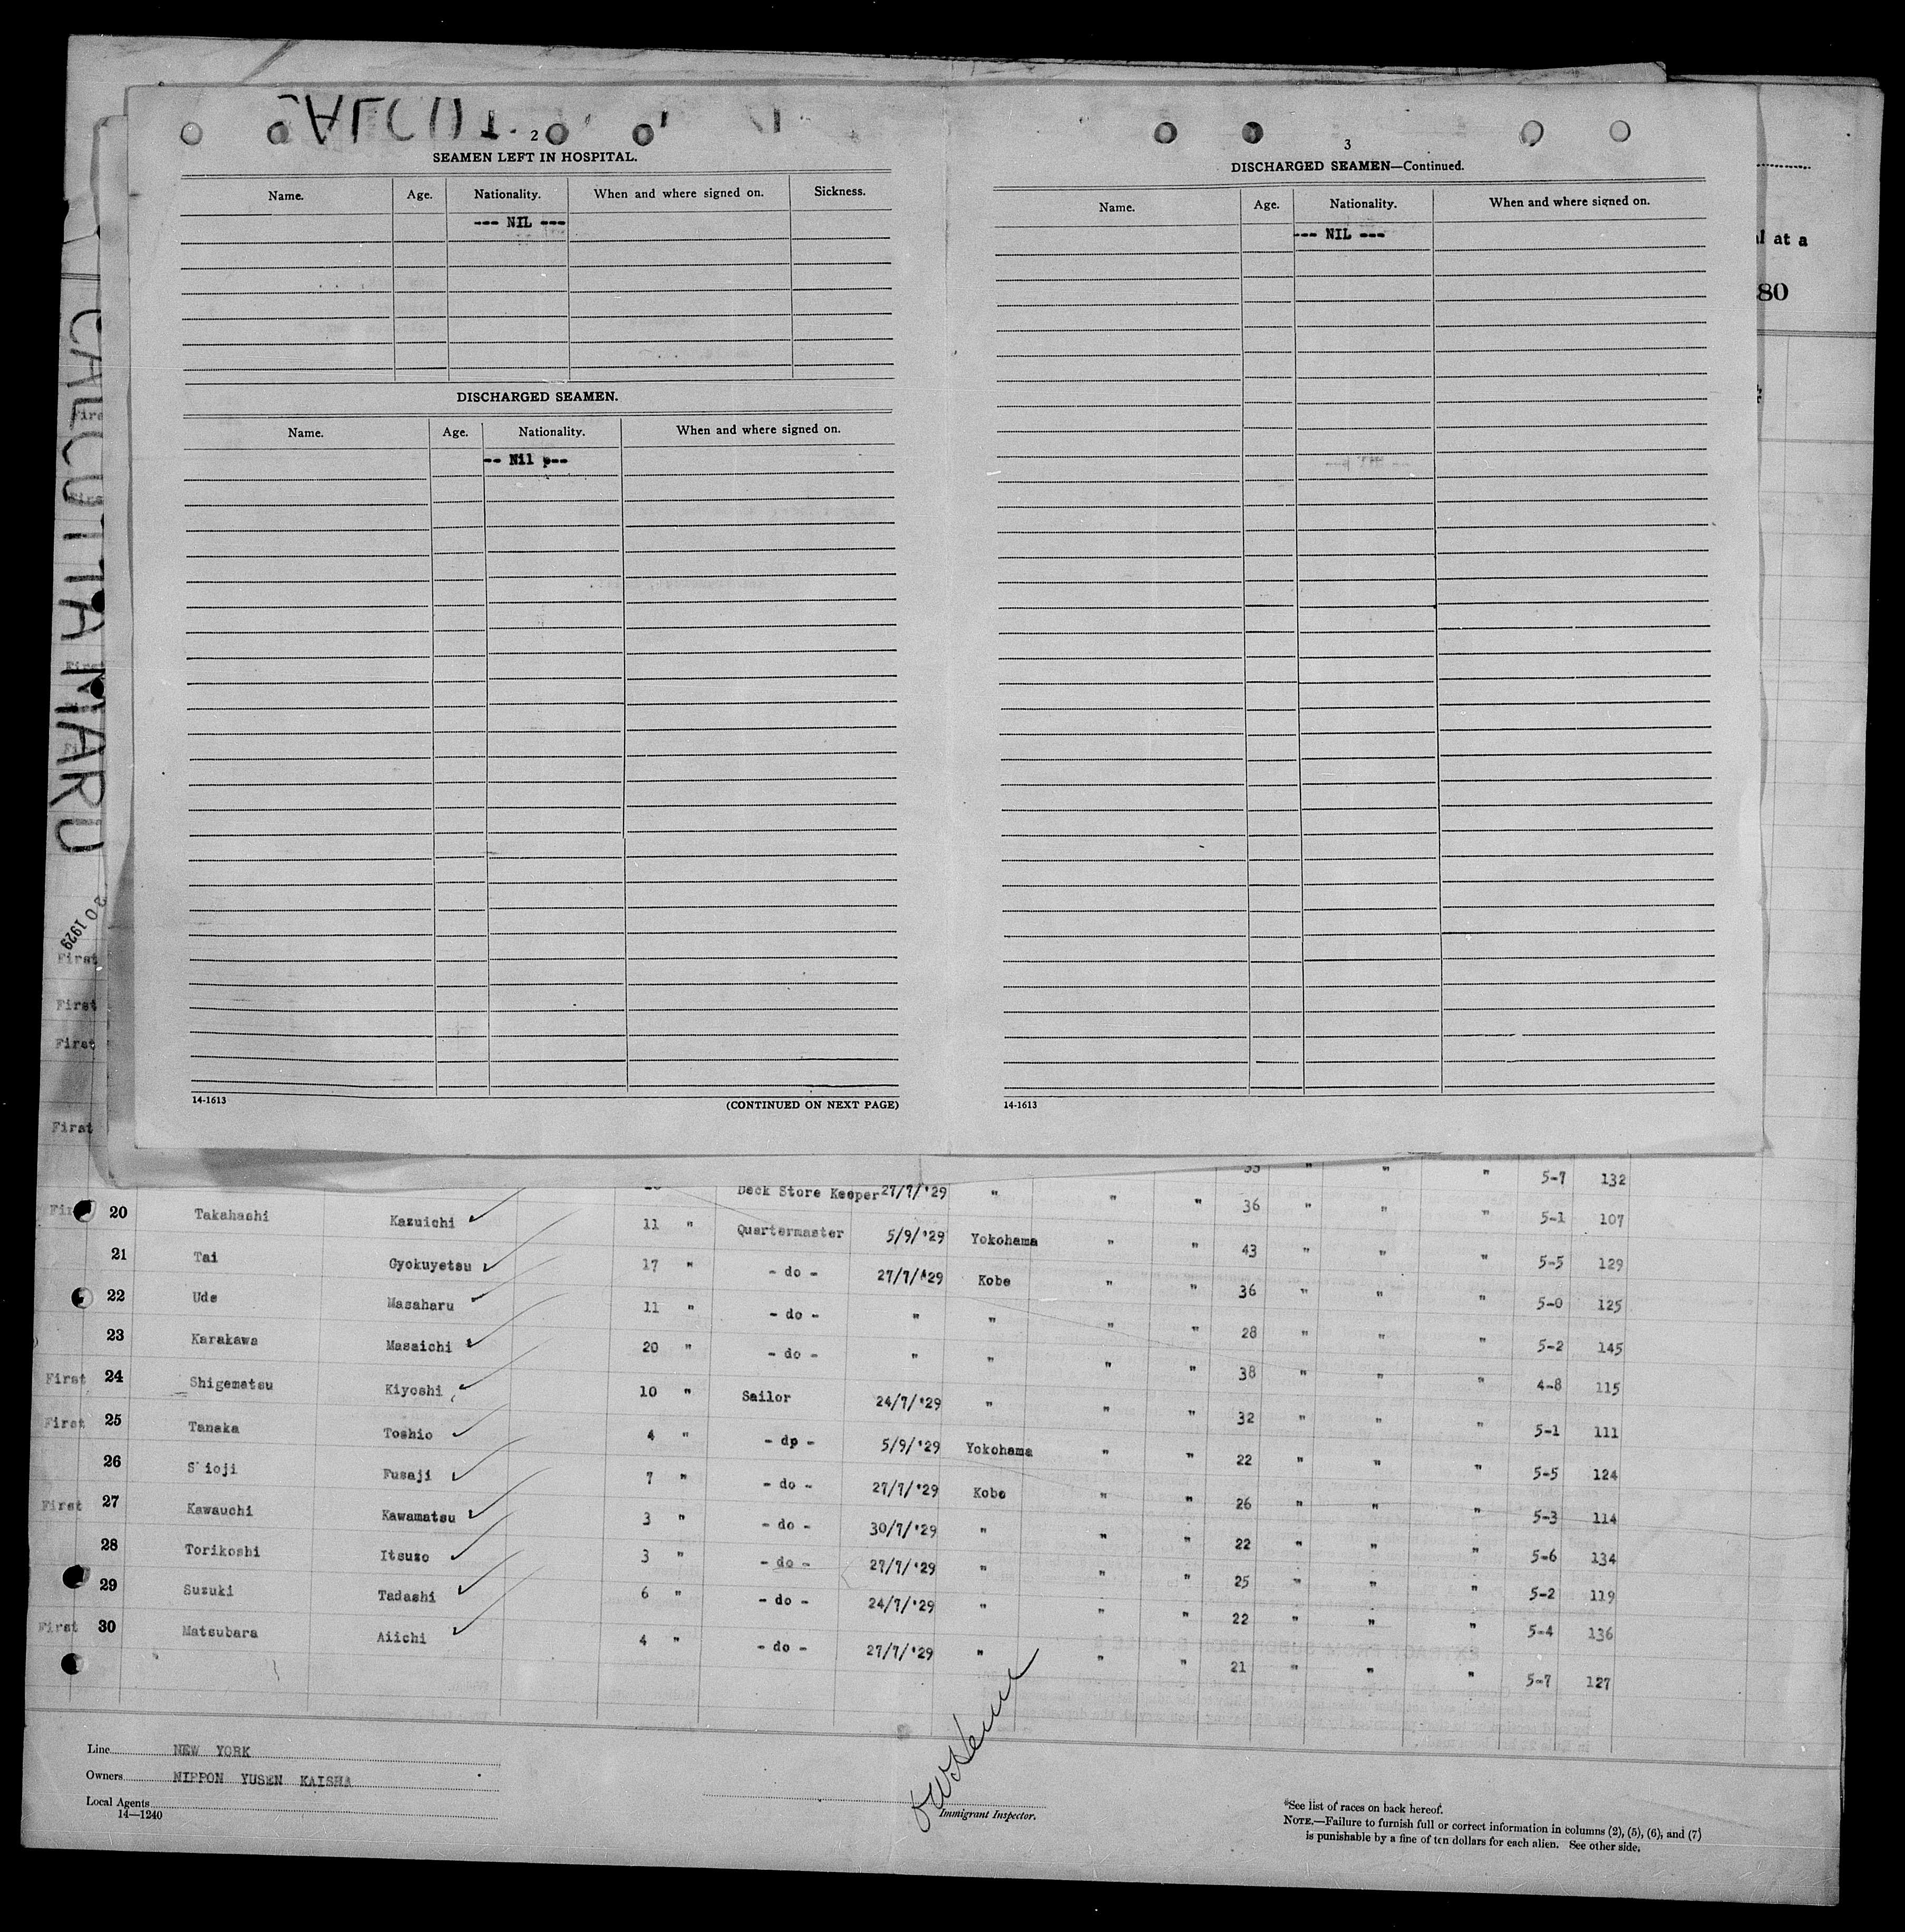 2
SEAMEN LEFT IN HOSPITAL.
Name. Age. Nationality. When and where signed on. Sickness.
--- NIL ---
DISCHARGED SEAMEN.
Name. Age. Nationality. When and where signed on.
-- Nil p--
14-1613
(CONTINUED ON NEXT PAGE)
3
DISCHARGED SEAMEN—Continued.
Name. Age. Nationality. When and where signed on.
--- NIL ---
14-1613
at a
80
CALCUTTA MARU
1929
First
First
First
First
First
First
First
Deck Store Keeper 27/7/'29 " " " 36 " " " 5-7 132
20 Takahashi Kazuichi 11 " Quartermaster 5/9/'29 Yokohama " " 43 " " " 5-1 107
21 Tai Gyokuyetsu 17 " - do - 27/7/'29 Kobe " " 36 " " " 5-5 129
22 Ude Masaharu 11 " - do - " " " " 28 " " " 5-0 125
23 Karakawa Masaichi 20 " - do - " " " " 38 " " " 5-2 145
First 24 Shigematsu Kiyoshi 10 " Sailor 24/7/'29 " " " 32 " " " 4-8 115
First 25 Tanaka Toshio 4 " - dp - 5/9/'29 Yokohama " " 22 " " " 5-1 111
26 S'ioji Fusaji 7 " - do - 27/7/'29 Kobe " " 26 " " " 5-5 124
First 27 Kawauchi Kawamatsu 3 " - do - 30/7/'29 " " " 22 " " " 5-3 114
28 Torikoshi Itsuzo 3 " - do - 27/7/'29 " " " 25 " " " 5-6 134
29 Suzuki Tadashi 6 " - do - 24/7/'29 " " " 22 " " " 5-2 119
First 30 Matsubara Aiichi 4 " - do - 27/7/'29 " " " 21 " " " 5-4 136
5-7 127
Line NEW YORK
Owners NIPPON YUSEN KAISHA
Local Agents
14—1240
Immigrant Inspector.
*See list of races on back hereof.
NOTE.—Failure to furnish full or correct information in columns (2), (5), (6), and (7)
is punishable by a fine of ten dollars for each alien. See other side.